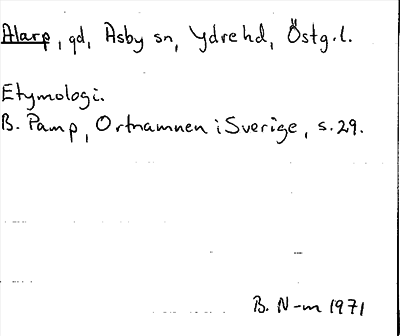 Alarp, gd, Asby sn, Ydre hd, Östg.l.
Etymologi.
B. Pamp, Ortnamnen i Sverige, s.29.
B. N-m 1971